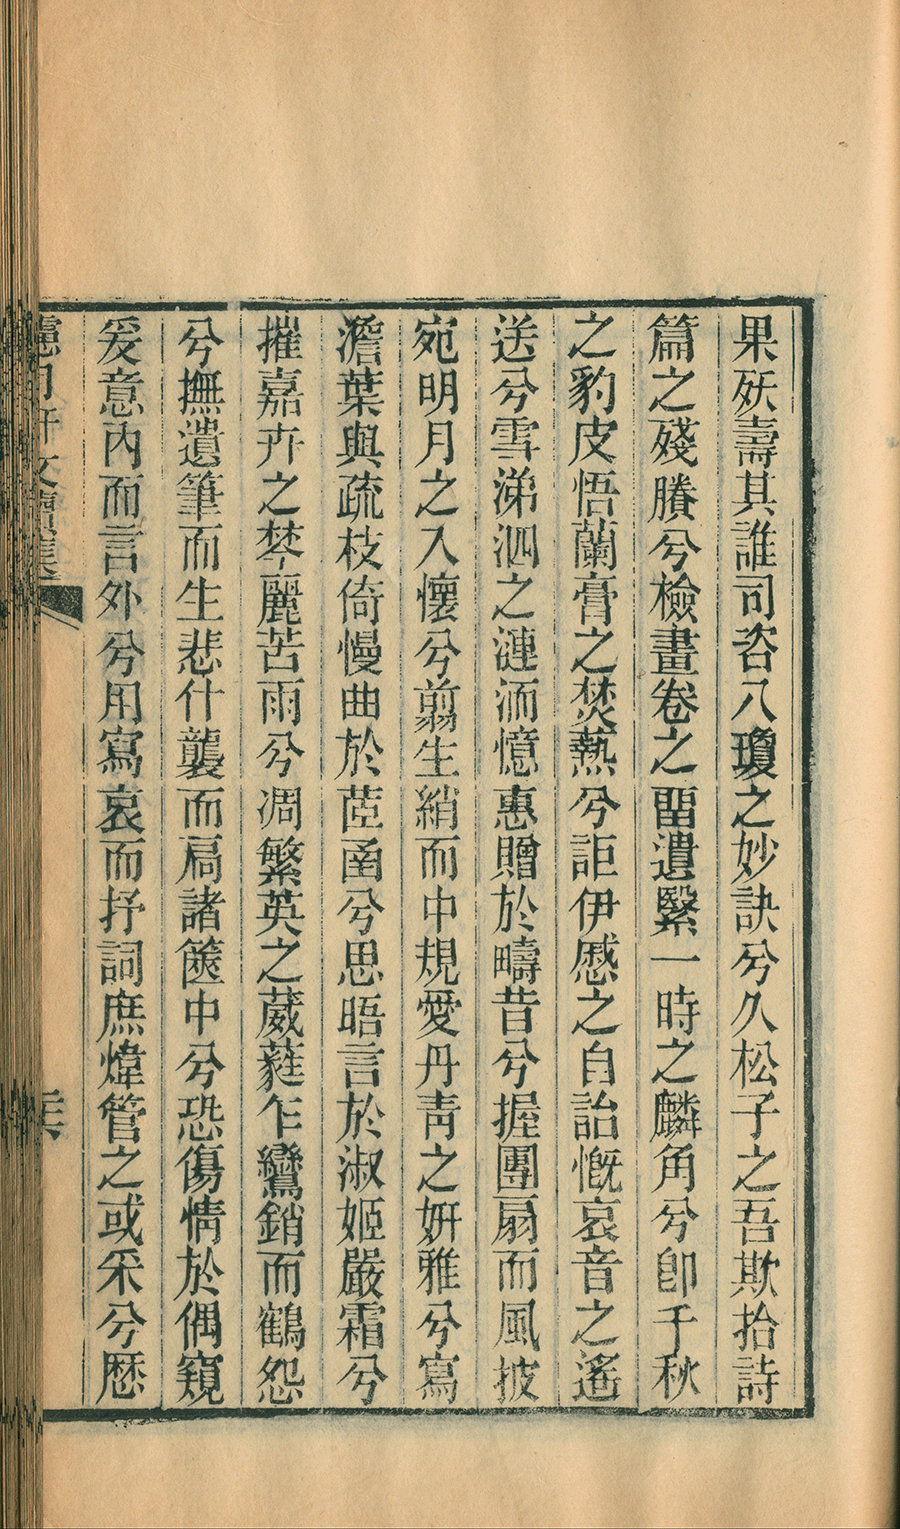 果殀壽其誰司咨八瓊之妙訣兮久松子之吾欺拾詩
篇之殘賸兮檢畫卷之畱遺繄一時之麟角兮卽千秋
之豹皮悟蘭膏之焚熱兮詎伊慼之自詒慨哀音之遙
送兮雪涕泗之漣洏憶惠贈於疇昔兮握團扇而風披
宛明月之入懷兮翦生綃而中規愛丹靑之妍雅兮寫
澹葉與疏枝倚慢曲於茝䓿兮思晤言於淑姬嚴霜兮
摧嘉卉之棽麗苦雨兮凋繁英之葳蕤乍鸞銷而鶴怨
兮撫遺筆而生悲什襲而扃諸篋中兮恐傷情於偶窺
爰意內而言外兮用寫哀而抒詞庶煒管之或采兮歷